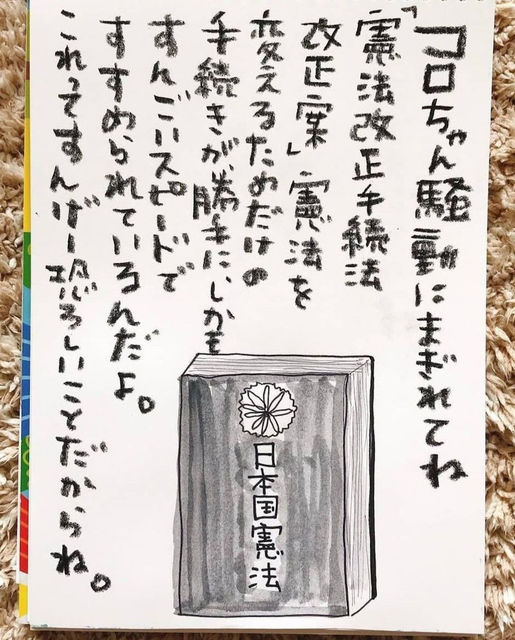 コロちゃん騒動にまぎれてね
「憲法改正手続法
改正案」憲法を
変えるためだけの
手続きが、勝手にしかも
すんごいスピードで
すすめられているんだよ。
これってすんげー恐ろしいことだからね。
日本国憲法